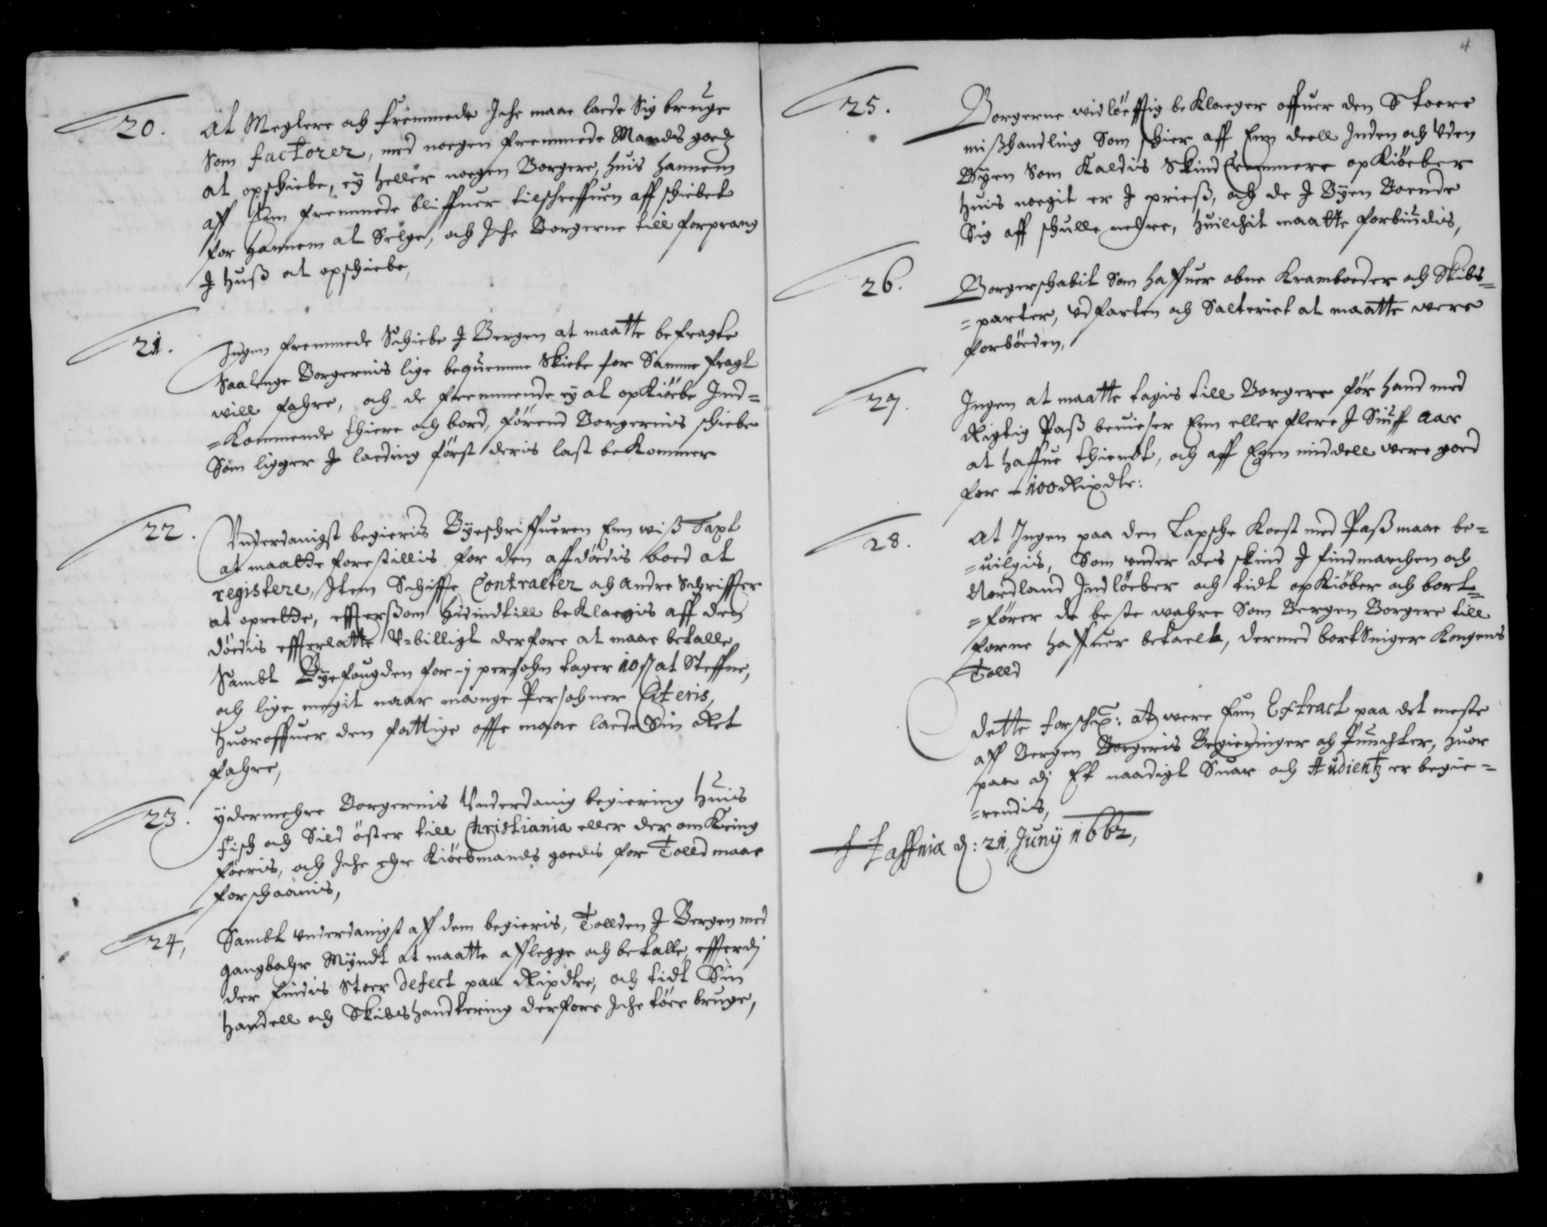 20. At Meglere och fremmede Iche maae laede Sig bruge
Som factorer, med noegen fremmede Mands goedz
at opschiebe, ey heller noegen Borgere, huis hannem
aff Een fremmede bliffuer tilschreffuen aff schiebet
for hannem at Selge, och Iche Borgerne till forprang
I Huuß at opschiebe,
21. Ingen fremmede Schiebe I Bergen at maatte befragte
Saalenge Borgernis lige beqvemme Skiebe for Samme fragt
will fahre, och de fremmende ey at opKiöbe Ind=
=Kommende thiere och bord, förend Borgernis schiebe
Som ligger I laeding först deris last beKommer
22. Vnderdanigst begieris Byeschriffueren Een wiß Taxt
at maatte forestillis for den affdödis boed at
registere, Item Schiffte Contracter och andre Schriffter
at oprette, effterßom huindtill beKlaegis aff den
döedis effterlatte V=billigt derfore at maae betalle,
Sambt Byefougden for -j persohn tager 10 ß at Steffne,
och lige megit naar mange Persohner Citeris,
Huoroffuer den fattige offte maae laede Sin Ret
fahre,
23. ydermehre Borgernis Vnderdanig begiering Huis
fisch och Sild öster till Christiania eller der omKring
föeris, och Iche ehr Kiöebmands goedis for Told maae
forschaanis,
24, Sambt Vnderdanigst aff dem begieris, Tollden I Bergen med
gangbahr Myndt at maatte afflegge och betalle, effterdj
der findis Stoer defect paa Rixdlr, och tidt Sin
handell och Skibshandtering derfore Iche töer bruge,
4
25. Borgerne widlöefftig beKlaeger offuer den Stoere
mißhandling Som schier aff Een deell Inden och Vden
Byen Som Kaldis Skind Cremmere opKiöeber
huis noegit er I prieß, och de I Byen Boende
Sig aff schulle nehre, huilchit maatte forbiudis,
26. Borgerschabit Som haffuer obne Kramboeder och Skibs=
=parter, Vdfarten och Salteriet at maatte were
forböeden,
27. Ingen at maatte tagis till Borgere för hand med
Rigtig Paß beuiser Een eller flere I Siuff aar
at haffue thiendt, och aff Egen middell were goed
for - 100 Rixdlr:
28. At Ingen paa den Lapsche Koest med Paß maae be=
=uilgis, Som under des skind I findmarchen och
Nordland Indlöeber och tidt opKiöber och bort=
=förer de beste wahre Som Bergen Borgere till
forne haffuer betaelt, dermed bortSniger Kongens
Tolld
dette forsch: at were Een Extract paa det meste
aff Bergen Borgeris Begieringer och Puncter, huor
paa dj Et naadigt Suar och Audientz er begie=
=rendis,
Haffnia d: 21, Juny 1662,